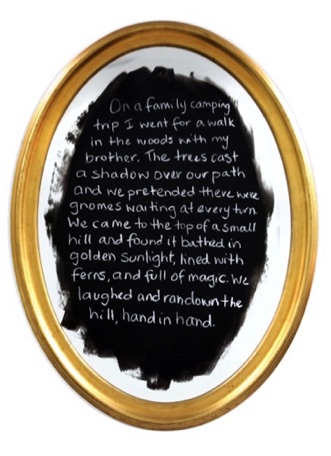 On a family camping
trip I went for a walk
in the woods with my
brother. The trees cast
a shadow over our path
and we pretended there were
gnomes waiting at every turn.
We came to the top of a small
hill and found it bathed in
golden sunlight, lined with
ferns, and full of magic. We
laughed and ran down the
hill, hand in hand.